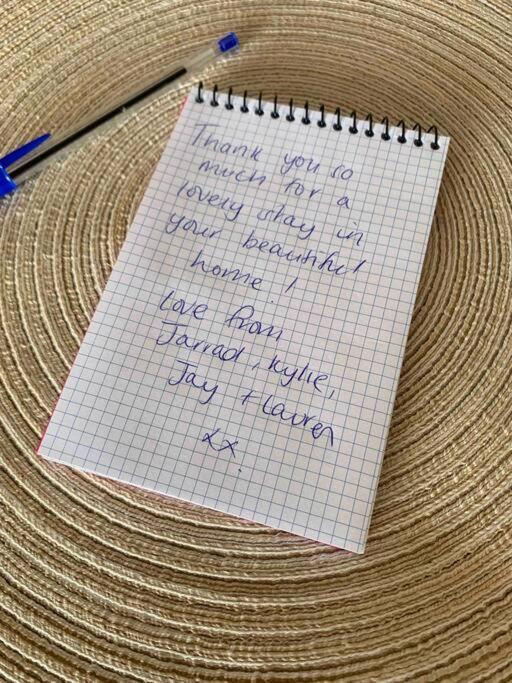 Thank you so
much for a
lovely stay in
your beautiful
home!
Love from
Jarrad, Kylie,
Jay + Lauren
xx